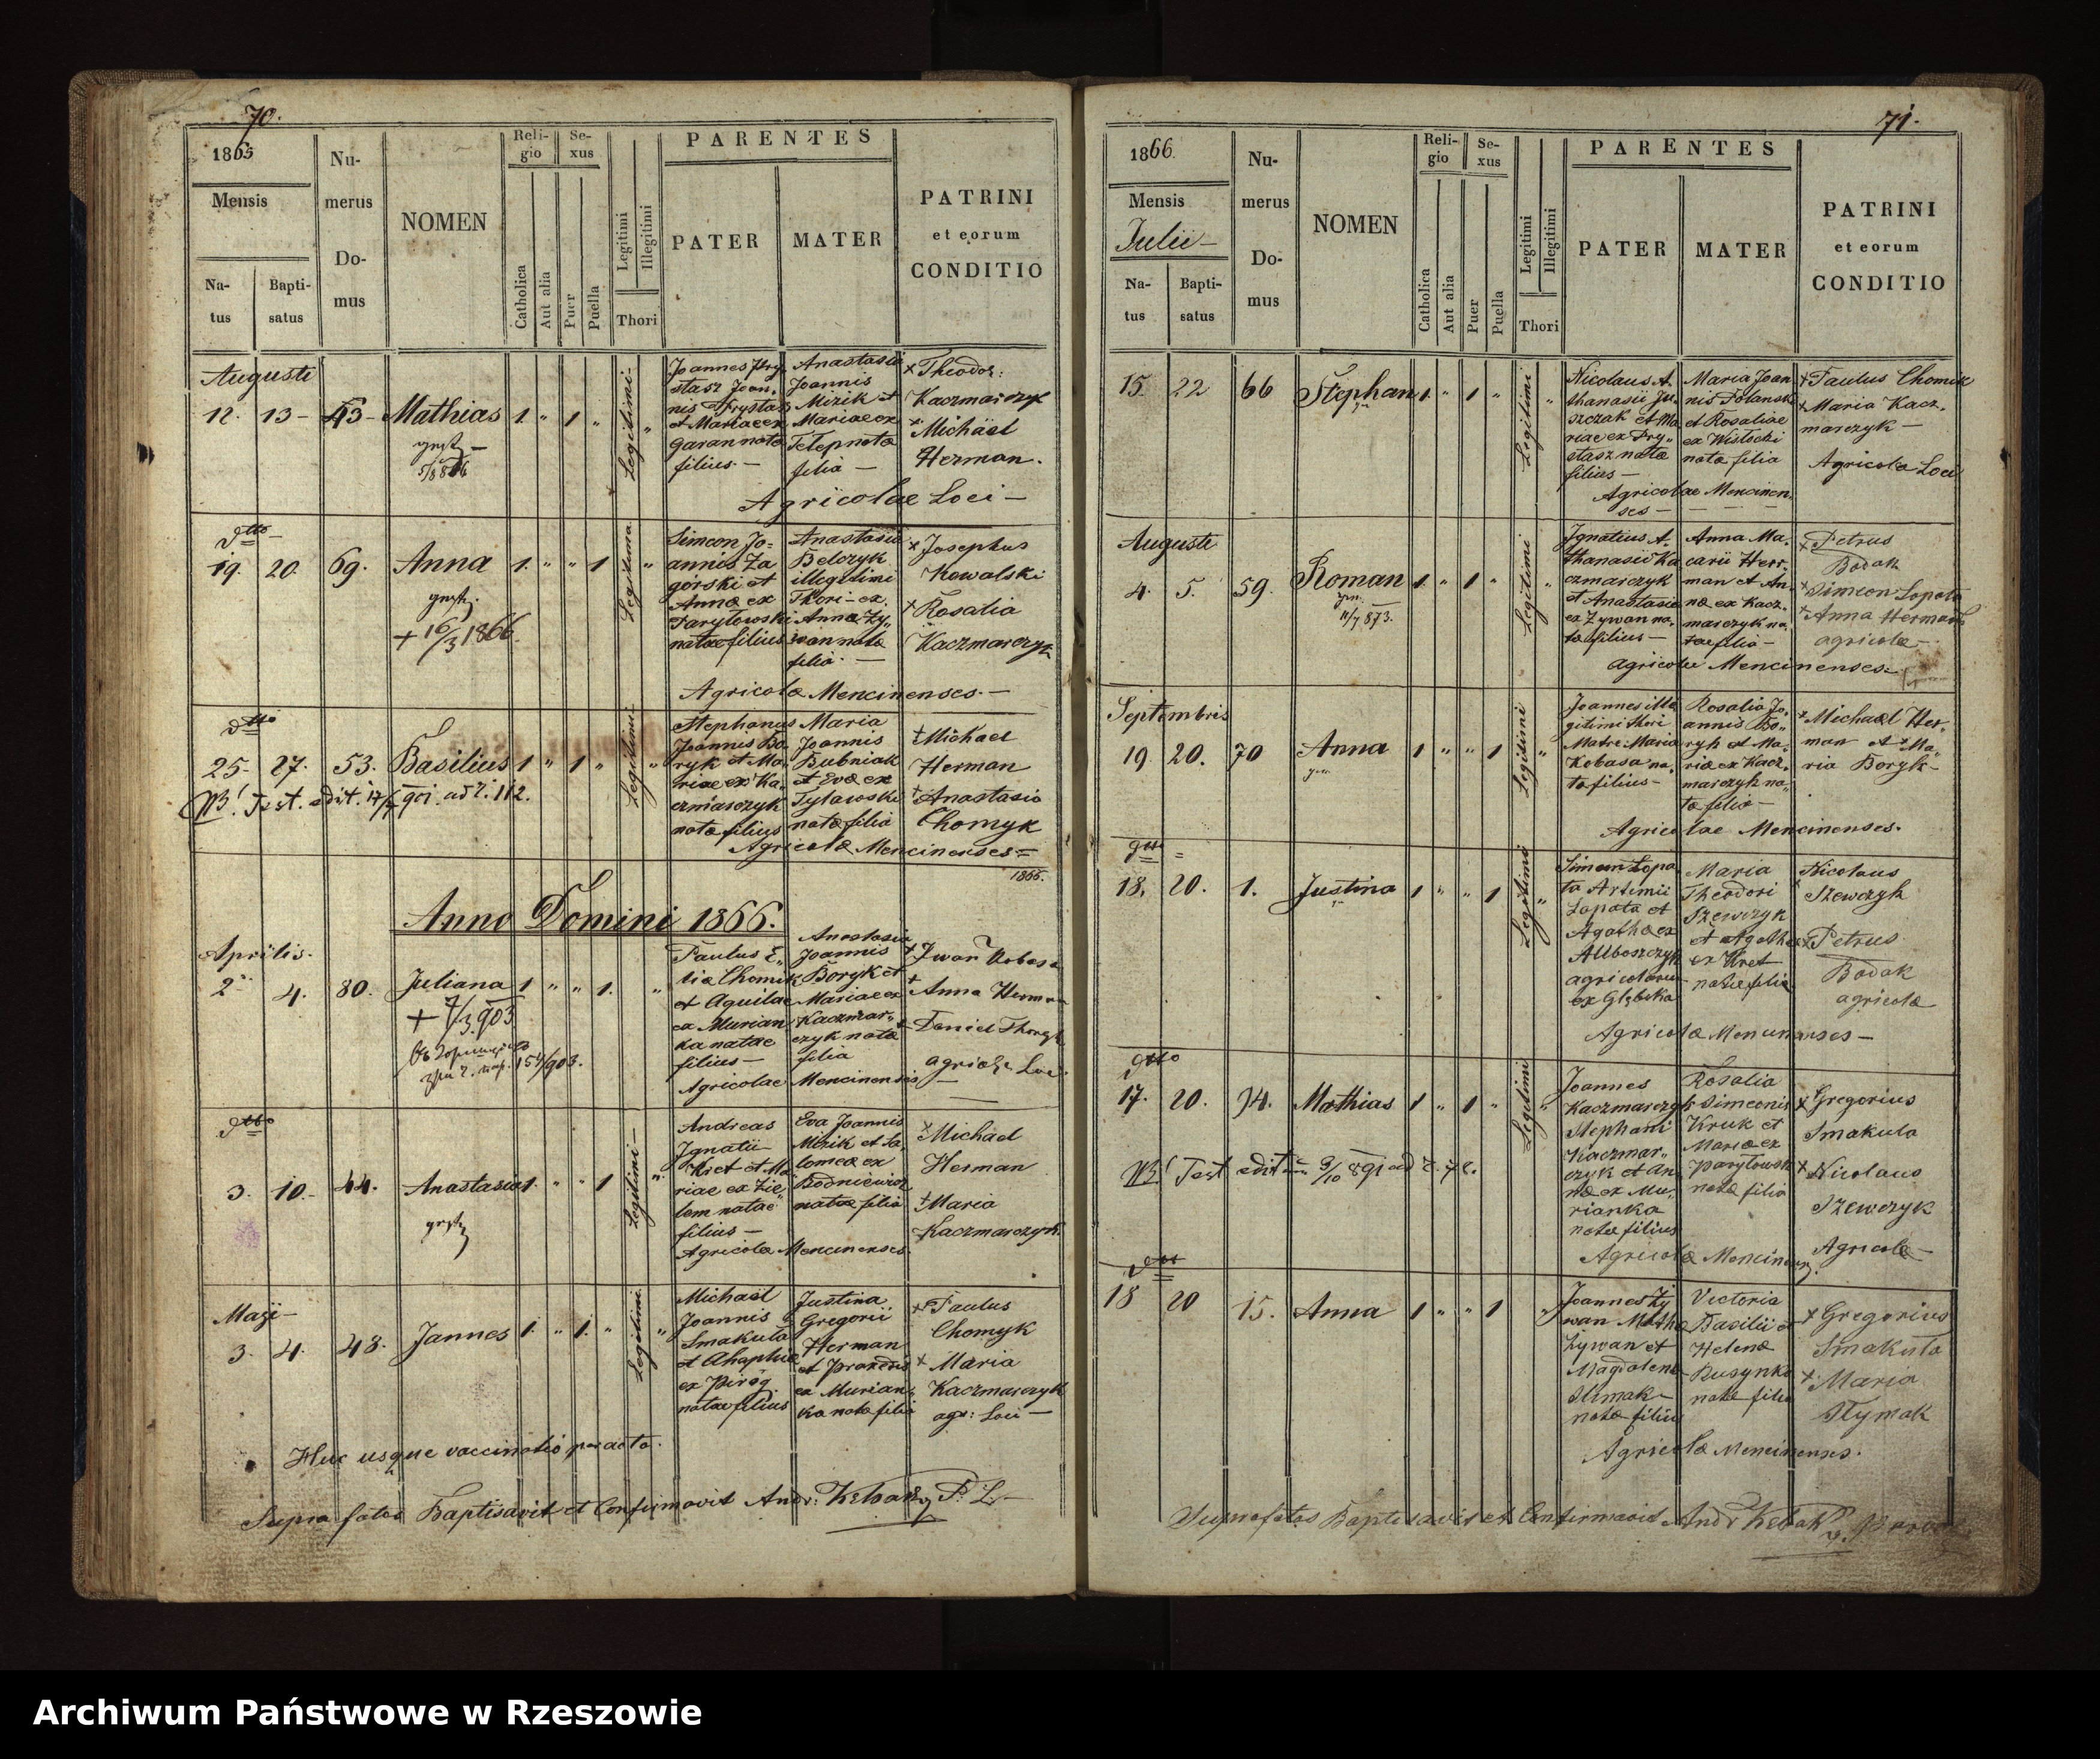 70.
1865
Mensis
Natus
Baptisatus
Numerus Domus
NOMEN
Religio
Catholica
Aut alia
Sexus
Puer
Puella
Legitimi
Illegitimi
Thori
PARENTES
PATER
MATER
PATRINI
et eorum
CONDITIO
Augusti
12. 13- 43- Mathias 1. " 1 "
Legitimi-
Joannes Pry-
stasz Joan-
nis Prystasz
et Mariae ex
Garan nata
filius.-
Anastasia
Joannis
Mizik et
Mariae ex
Telep nata
filia -
Theodor:
Kaczmarczyk
Michael
Herman.
Agricolae Loci -
dtto
19. 20. 69. Anna 1. " " 1
+ 16/3 1866.
Legitima
Simeon Jo-
annis Za
górski et
Anna ex
Parylowski
natae filius
Anastasia
Belczyk
illegitimi
Thori - ex
Anna Zy-
wan nata
filia. -
Josephus
Kowalski
Rosalia
Kaczmarczyk
Agricola Mencinenses. -
dtto
25- 27. 53. Basilius 1 " 1 "
NB! Test. edit. 17/ 901. ad 2. 112.
Legitimi-
Stephanus
Joannis Bo
ryk et Ma
riae ex Ka
czmarczyk
nata filius
Maria
Joannis
Bubniak
et Eva ex
Tylawski
nata filia
Michael
Herman
Anastasia
Chomyk
Agricola Mencinenses =
1866.
Anno Domini 1866.
Aprilis.
2 4. 80. Juliana 1 " " 1.
+ 7/3 903
154/903.
Paulus E-
lia Chomik
et Aquilae
ex Murian
ka natae
filius -
Anastasia
Joannis
Boryk et
Mariae ex
Kaczmar-
czyk nata
filia
Iwan Kobasa
Anna Herman
Daniel
Agricolae Mencinensis
dtto
3. 10.- 44. Anastasia 1. " " 1
Legitimi -
Andreas
Ignatii -
Kret et Ma
riae ex Zie
lem natae
filius -
Eva Joannis
Mizik et Sa
lomea ex
Bodniewicz
natae filia
Michael
Herman
Maria
Kaczmarczyk.
Agricola Mencinenses.
Maji -
3. 4. 48. Jannes 1. " 1. "
Legitimi
Michael
Joannis
Smakula
et Ahaphia
ex Piróg
natae filius
Justina
Gregorii
Herman
et Praxedis
ex Murian-
ka nata filia
Paulus
Chomyk
Maria
Kaczmarczyk
agr: Loci -
Huc usque vaccinatio peracta.
Supra fatos Baptisavit et Confirmavit Andr:
71.
1866.
Mensis
Julii -
Natus
Baptisatus
Numerus Domus
NOMEN
Religio
Catholica
Aut alia
Sexus
Puer
Puella
Legitimi
Illegitimi
Thori
PARENTES
PATER
MATER
PATRINI
et eorum
CONDITIO
15. 22 66 Stephan 1. " 1 "
Legitimi
Nicolaus A-
thanasii Ju-
szczak et Ma
riae ex Pry-
stasz nata
filius -
Maria Joan
nis Polanski
et Rosaliae
ex Wislocki
nata filia
Paulus Chomik
Maria Kacz-
marczyk -
Agricola Loci
Agricolae Mencinen-
ses -
Augusti
4. 5. 59. Roman 1. " 1 "
11/7 873.
Legitimi
Ignatius A-
thanasii Ka
czmarczyk
et Anastasia
ex Zywan na-
ta filius -
Anna Ma-
carii Herr-
man et An-
na ex Kacz-
marczyk na-
tae filia -
Petrus
Bodak
Simeon Lopata
Anna Herman
agricola -
Agricolae Mencinenses.
Septembris
19. 20. 70 Anna 1 " " 1
Legitimi
Joannes ille
gitimi thori
Matre Maria
Kobasa na-
ta filius -
Rosalia Jo-
annis Bo-
ryk et Ma-
ria ex Kacz-
marczyk na-
ta filia -
Michael Her-
man et Ma-
ria Boryk -
Agricolae Mencinenses.
dtto =
18. 20. 1. Justina 1 " " 1
Legitimi
Simeon Lopa
ta Artimii
Lopata et
Agatha ex
agricolarum
Maria
Theodori
Szewczyk
et Agatha
ex Kret
nata filia
Nicolaus
Szewczyk
Petrus
Bodak
agricola
Agricola Mencinenses -
dtto
17. 20. 94. Mathias 1 " 1 "
NB! Test edit 9/10 891 ad
Legitimi
Joannes
Kaczmarczyk
Stephani
Kaczmar-
czyk et An-
na ex Mu-
rianka
nata filius
Rosalia
Simeonis
Kruk et
Maria ex
Parylowsk
nata filia
Gregorius
Smakula
Nicolaus
Szewczyk
Agricola -
Agricola Mencinens.
dtto
18 20 15. Anna 1 " " 1
Joannes Zy
wan
Zywan et
Magdalena
Slimak -
nata filius
Victoria
Basilii et
Helena
Rusynka
nata filia
Gregorius
Smakula
Maria
Slymak
Agricola Mencinenses.
Suprafatos Baptisavit et Confirmavit Andr
Archiwum Państwowe w Rzeszowie